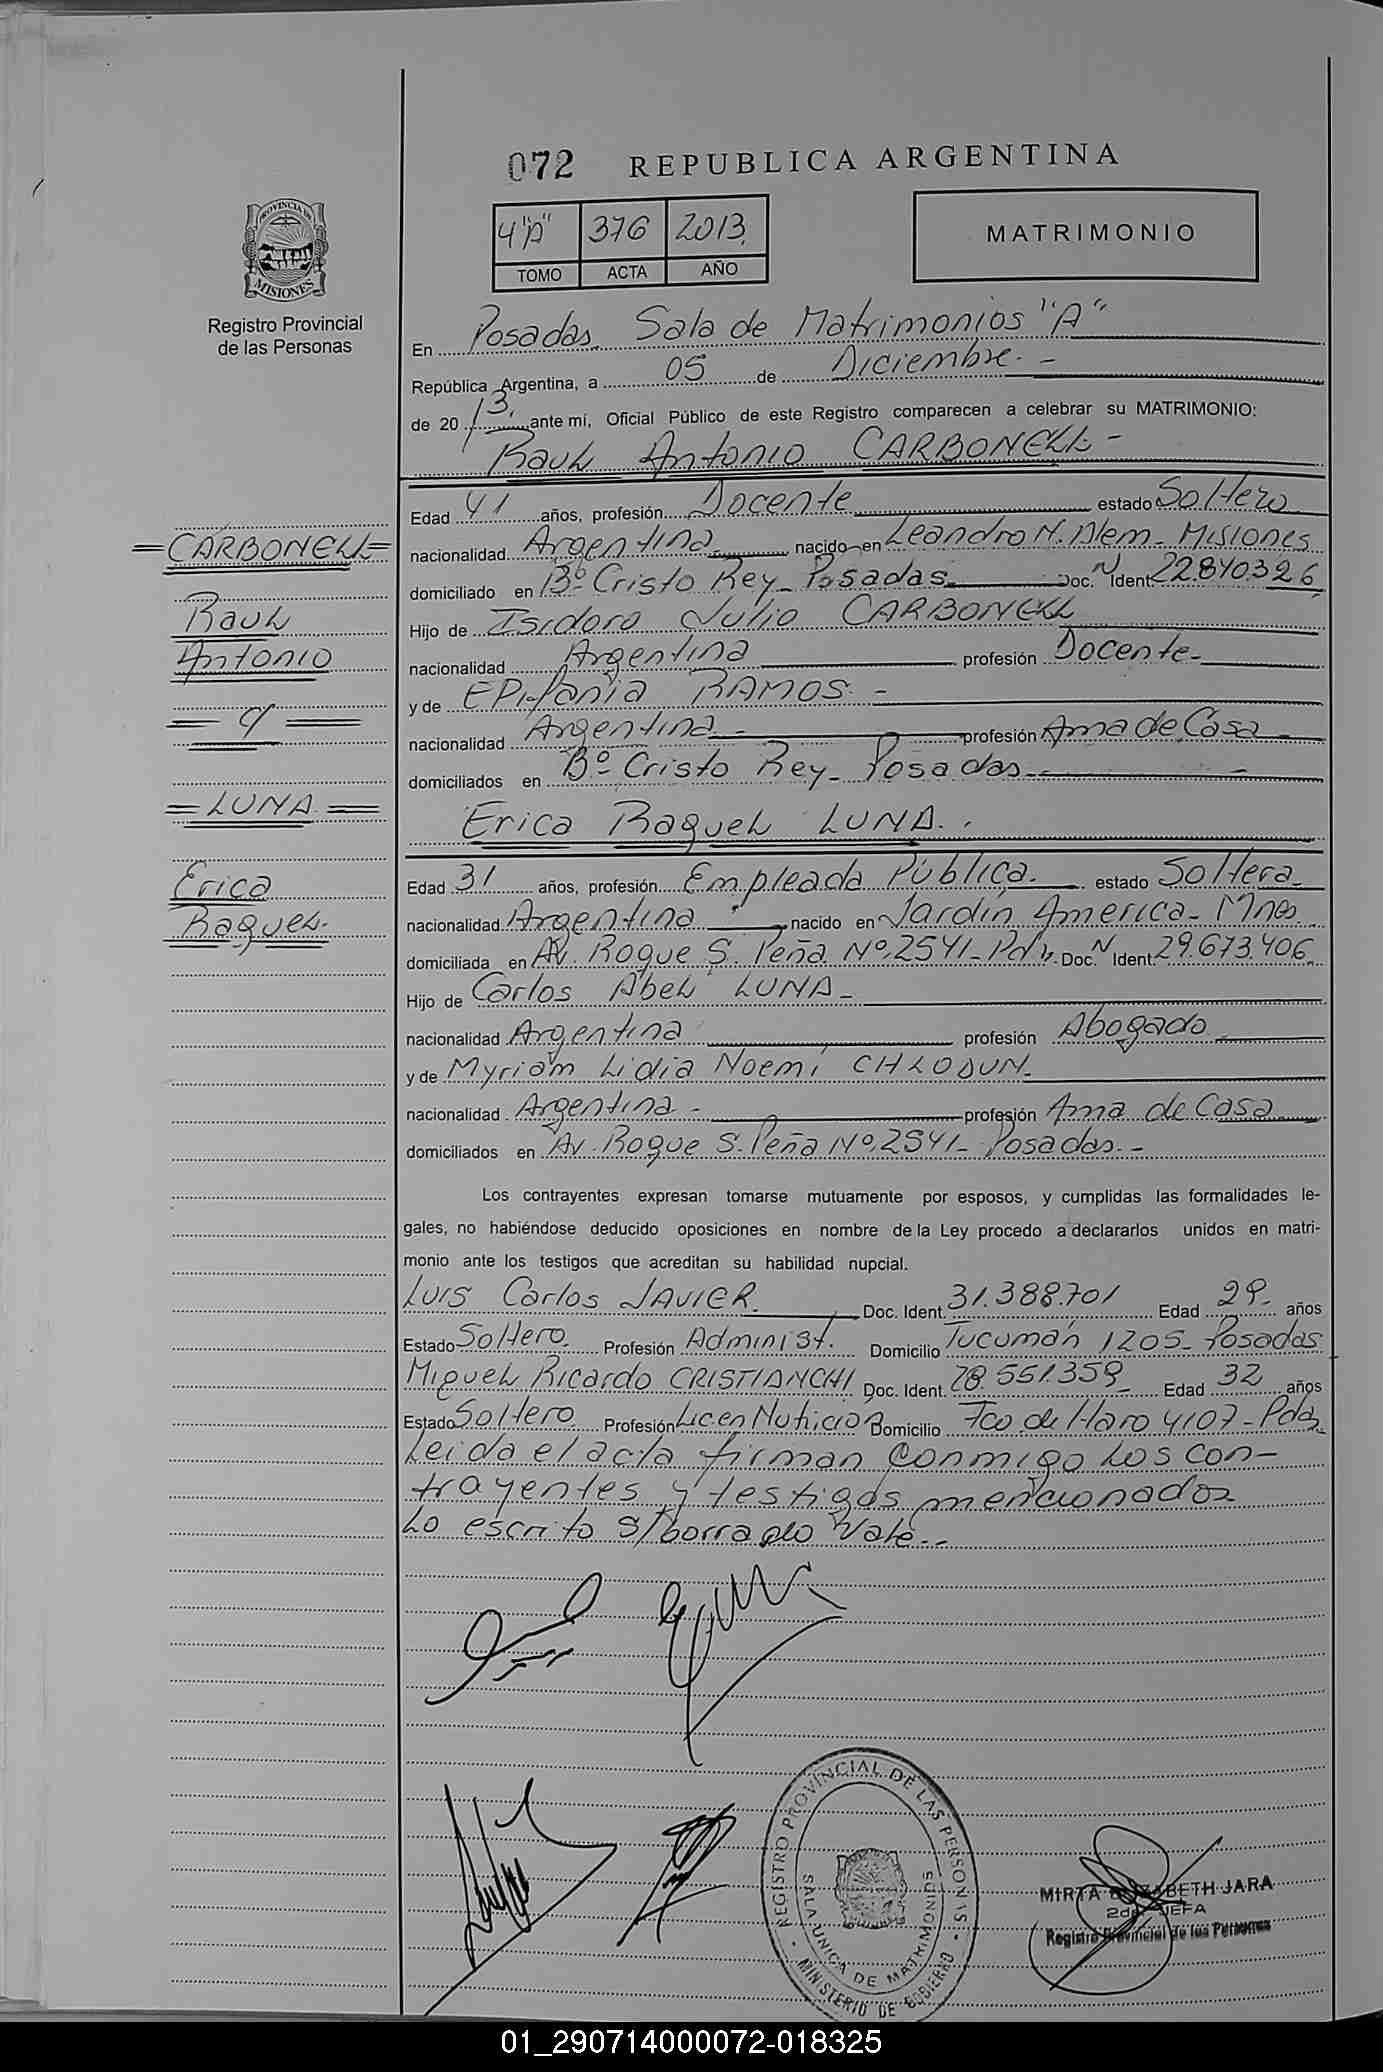 072 REPUBLICA ARGENTINA
4"A" 376 2013.
TOMO ACTA AÑO
MATRIMONIO
PROVINCIA DE
MISIONES
Registro Provincial
de las Personas
En Posadas Sala de Matrimonios "A"
República Argentina, a 05 de Diciembre. -
de 2013. ante mí, Oficial Público de este Registro comparecen a celebrar su MATRIMONIO:
Raul Antonio CARBONELL -
Edad 41 años, profesión Docente estado Soltero
nacionalidad Argentina nacido en Leandro N. Alem - Misiones
domiciliado en Bº Cristo Rey - Posadas Doc. N Ident. 22.840.326
Hijo de Isidoro Julio CARBONELL
nacionalidad Argentina profesión Docente -
y de EPifania RAMOS. -
nacionalidad Argentina - profesión Ama de Casa -
domiciliados en Bº Cristo Rey - Posadas -
Erica Raquel LUNA. .
Edad 31 años, profesión Empleada Pública. estado Soltera
nacionalidad Argentina nacido en Jardín America - Mnes.
domiciliada en Av. Roque S. Peña Nº 2541 - Pdas. Doc. N Ident. 29.673.406
Hijo de Carlos Abel LUNA -
nacionalidad Argentina profesión Abogado
y de Myriam Lidia Noemí CHLODUN.
nacionalidad Argentina - profesión Ama de Casa
domiciliados en Av. Roque S. Peña Nº 2541 - Posadas. -
Los contrayentes expresan tomarse mutuamente por esposos, y cumplidas las formalidades le-
gales, no habiéndose deducido oposiciones en nombre de la Ley procedo a declararlos unidos en matri-
monio ante los testigos que acreditan su habilidad nupcial.
Luis Carlos JAVIER. Doc. Ident. 31.388.701 Edad 29. años
Estado Soltero. Profesión Administ. Domicilio Tucumán 1205 - Posadas
Miguel Ricardo CRISTIANCHI Doc. Ident. 28.551.359 Edad 32 años
Estado Soltero Profesión Licen Nutrición Domicilio Fco. de Haro 4107 - Pdas.
Leida el acta firman conmigo los con-
trayentes y testigos mencionados
Lo escrito s/borrado Vale. -
= CARBONELL =
Raul
Antonio
= c/ =
= LUNA =
Erica
Raquel.
REGISTRO PROVINCIAL DE LAS PERSONAS
SALA UNICA DE MATRIMONIOS
MINISTERIO DE GOBIERNO
MIRTA ELIZABETH JARA
2da. JEFA
Registro Provincial de las Personas
01_290714000072-018325